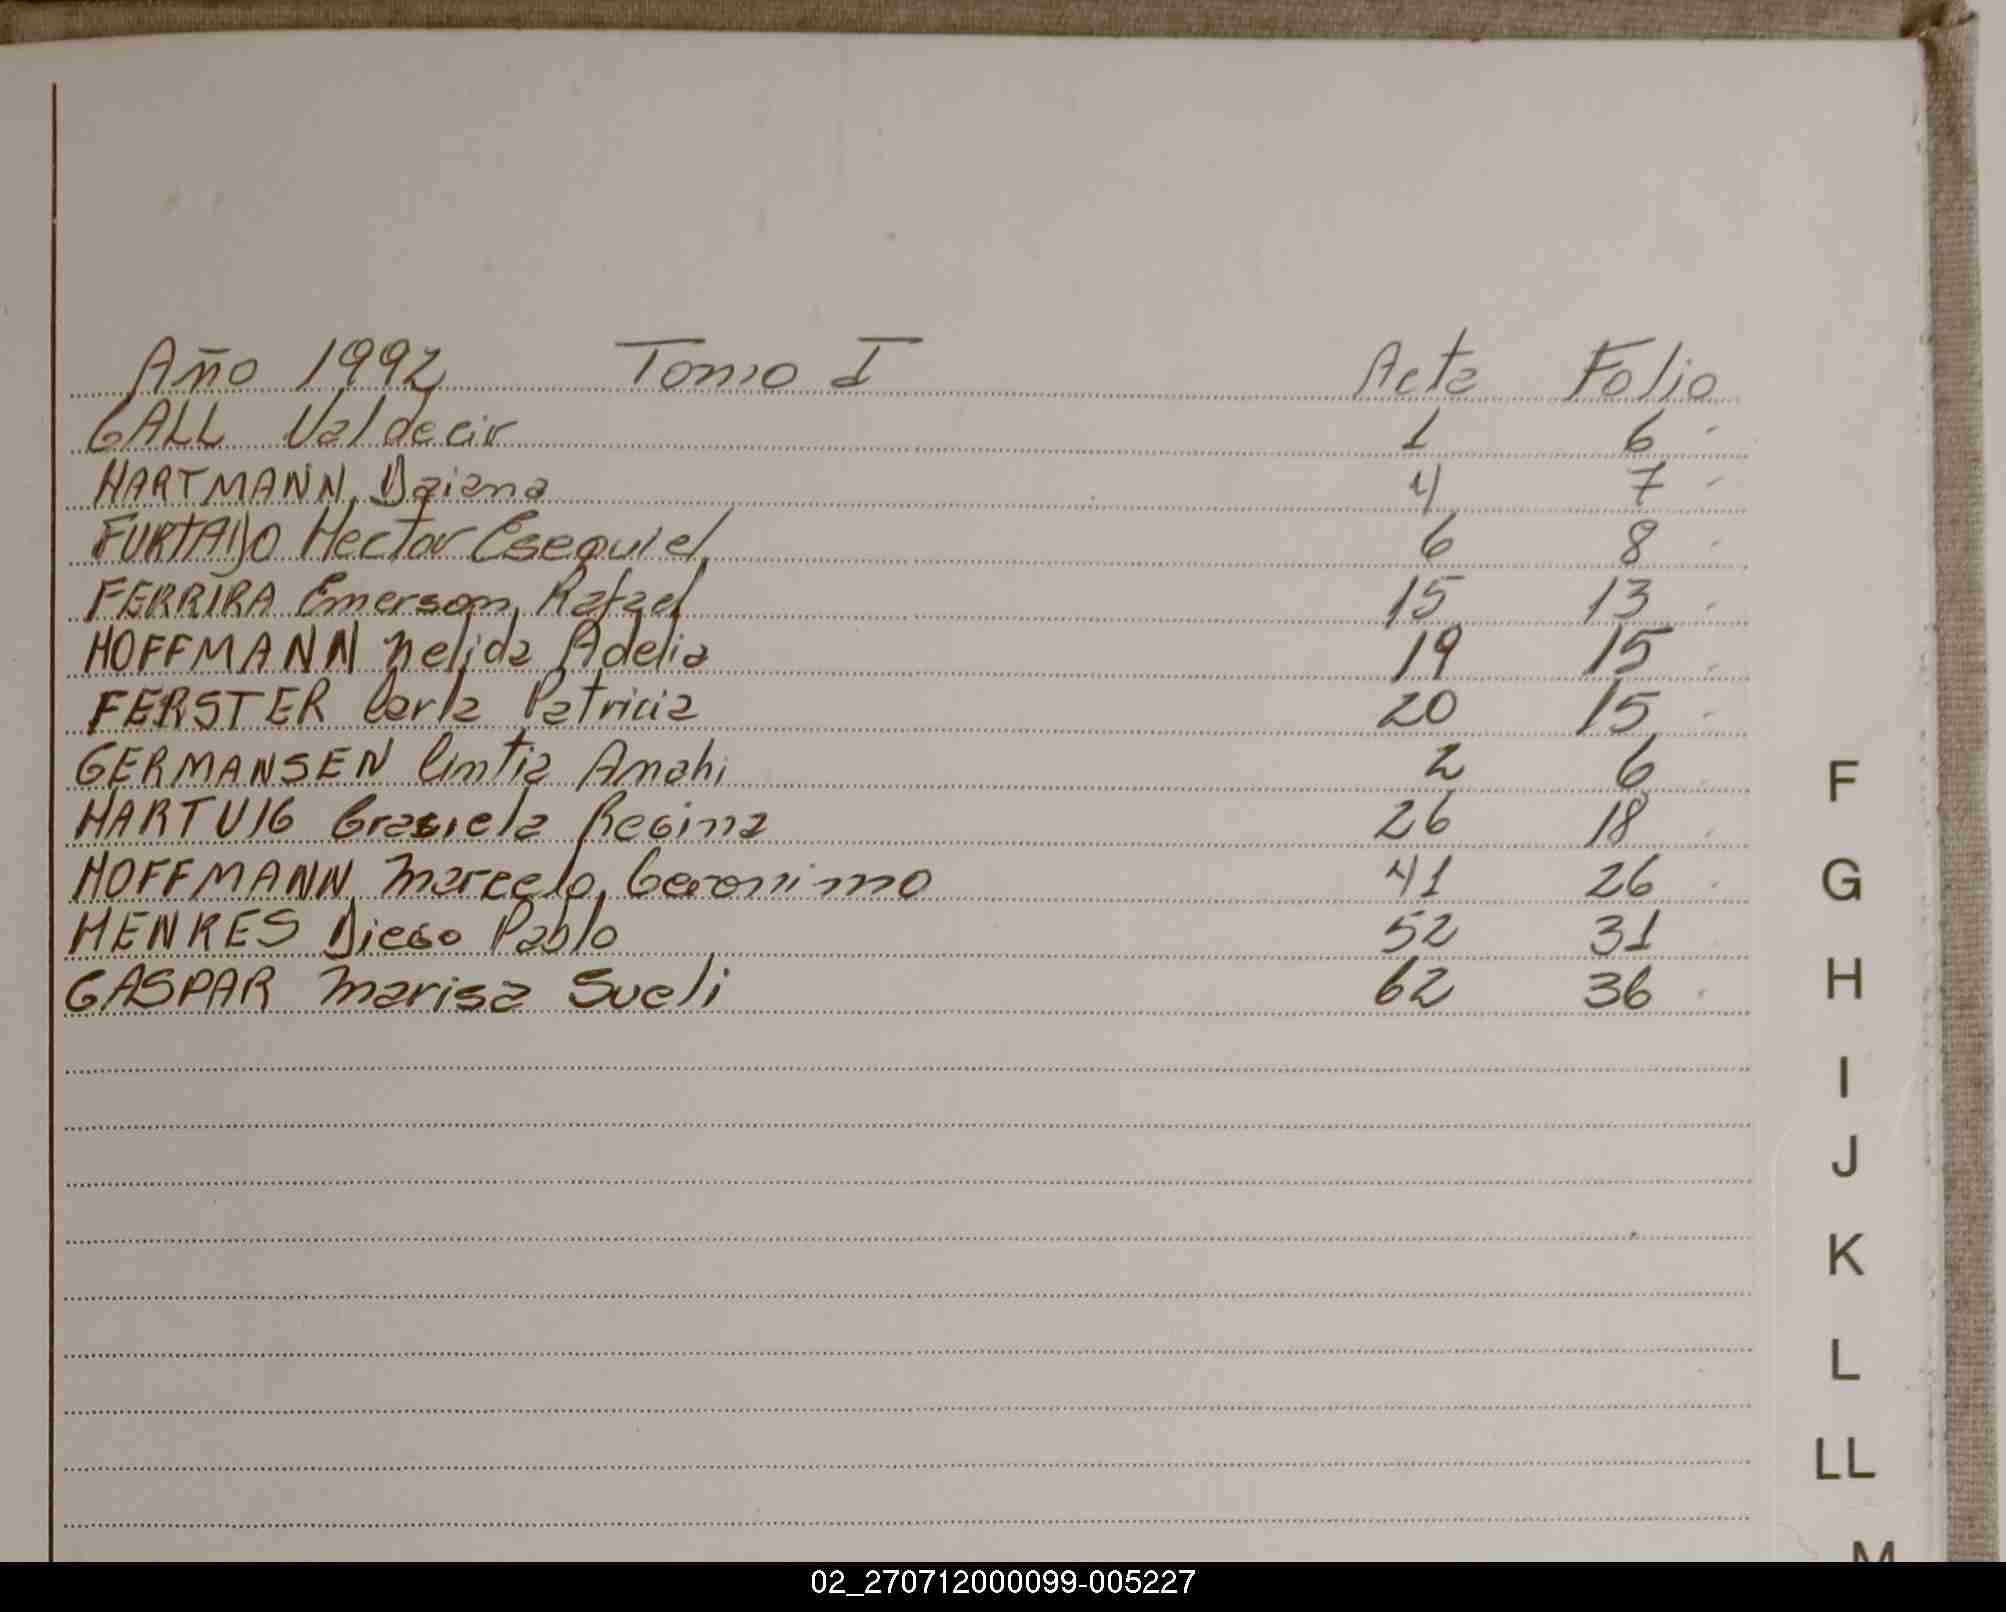 Año 1992 Tomo I Acta Folio
GALL Valdecir 1 6
HARTMANN Daiana 4 7
FURTADO Hector Esequiel 6 8
FERRIRA Emerson Rafael 15 13
HOFFMANN Nelida Adelia 19 15
FERSTER Carla Patricia 20 15
GERMANSEN Cintia Anahi 2 6
HARTUIG Grasiela Regina 26 18
HOFFMANN Marcelo Geronimo 41 26
HENRES Diego Pablo 52 31
GASPAR Marisa Sueli 62 36
F
G
H
I
J
K
L
LL
M
02_270712000099-005227